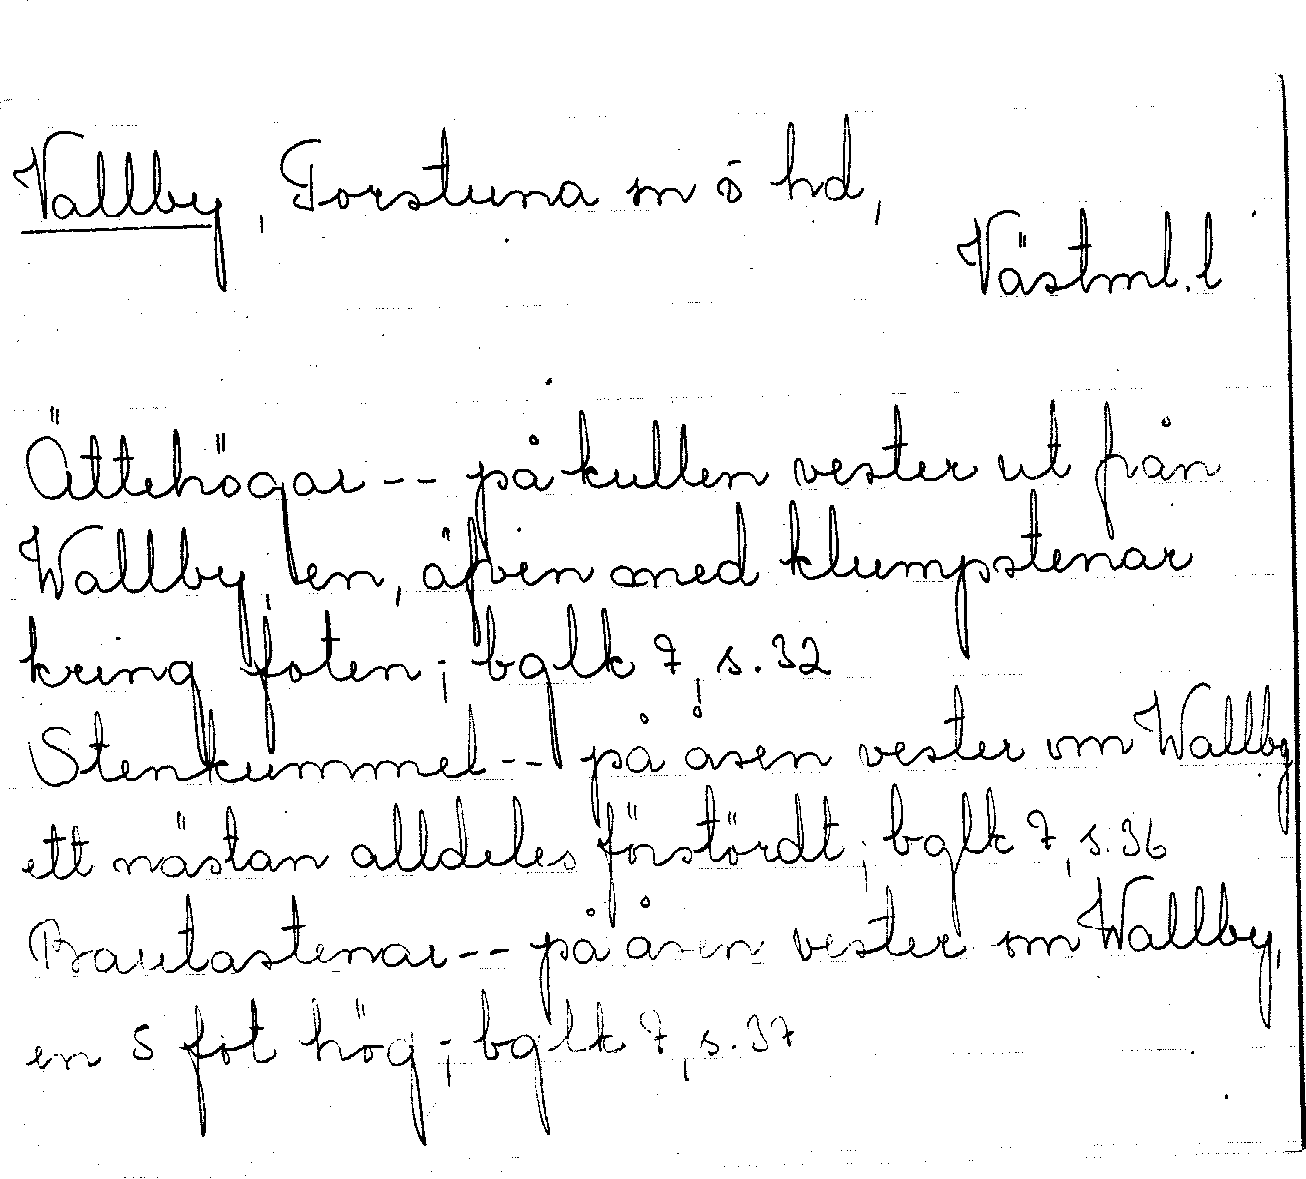 Vallby, Torstuna sn o hd,
Västml. l
Ättehögar -- på kullen vester ut från
Wallby, en, äfven med klumpstenar
kring foten; bglk 7, s. 32
Stenkummel -- på åsen vester om Wallby
ett nästan alldeles förstördt; bglk 7, s. 36
Bautastenar -- på åsen vester om Wallby,
en 5 fot hög; bglk 7, s. 37